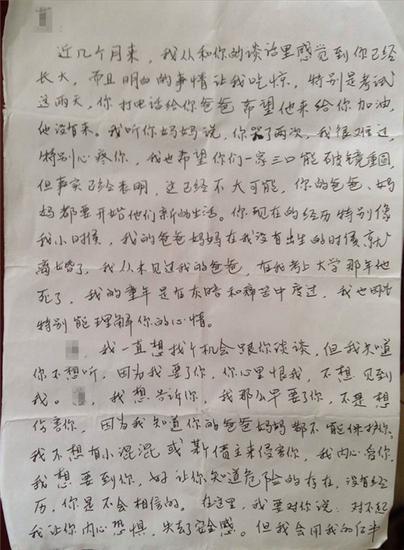 近几个月来，我从和你的谈话里感觉到你已经
长大，而且明白的事情让我吃惊，特别是考试
这两天，你打电话给你爸爸希望他来给你加油，
他没有来，我听你妈妈说，你哭了两次，我很难过，
特别心疼你，我也希望你们一家三口能破镜重圆，
但事实已经表明，这已经不大可能，你的爸爸、妈
妈都要开始他们新的生活。你现在的经历特别像
我小时候，我的爸爸妈妈在我没有出生的时候就
离婚了，我从未见过我的爸爸，在我考上大学那年他
死了，我的童年是在灰暗和痛苦中度过，我也因此
特别能理解你的心情。
，我一直想找个机会跟你谈谈，但我知道
你不想听，因为我要了你，你心里恨我，不想见到
我。，我想告诉你，我那么早要了你，不是想
伤害你，因为我知道你的爸爸妈妈都不能保护你，
我不想有小混混或者来侵害你，我内心爱你，
我想要到你，好让你知道危险的存在，没有经
历，你是不会相信的。在这里，我要对你说：对不起
我让你内心恐惧，失去了安全感。但我会用我的后半